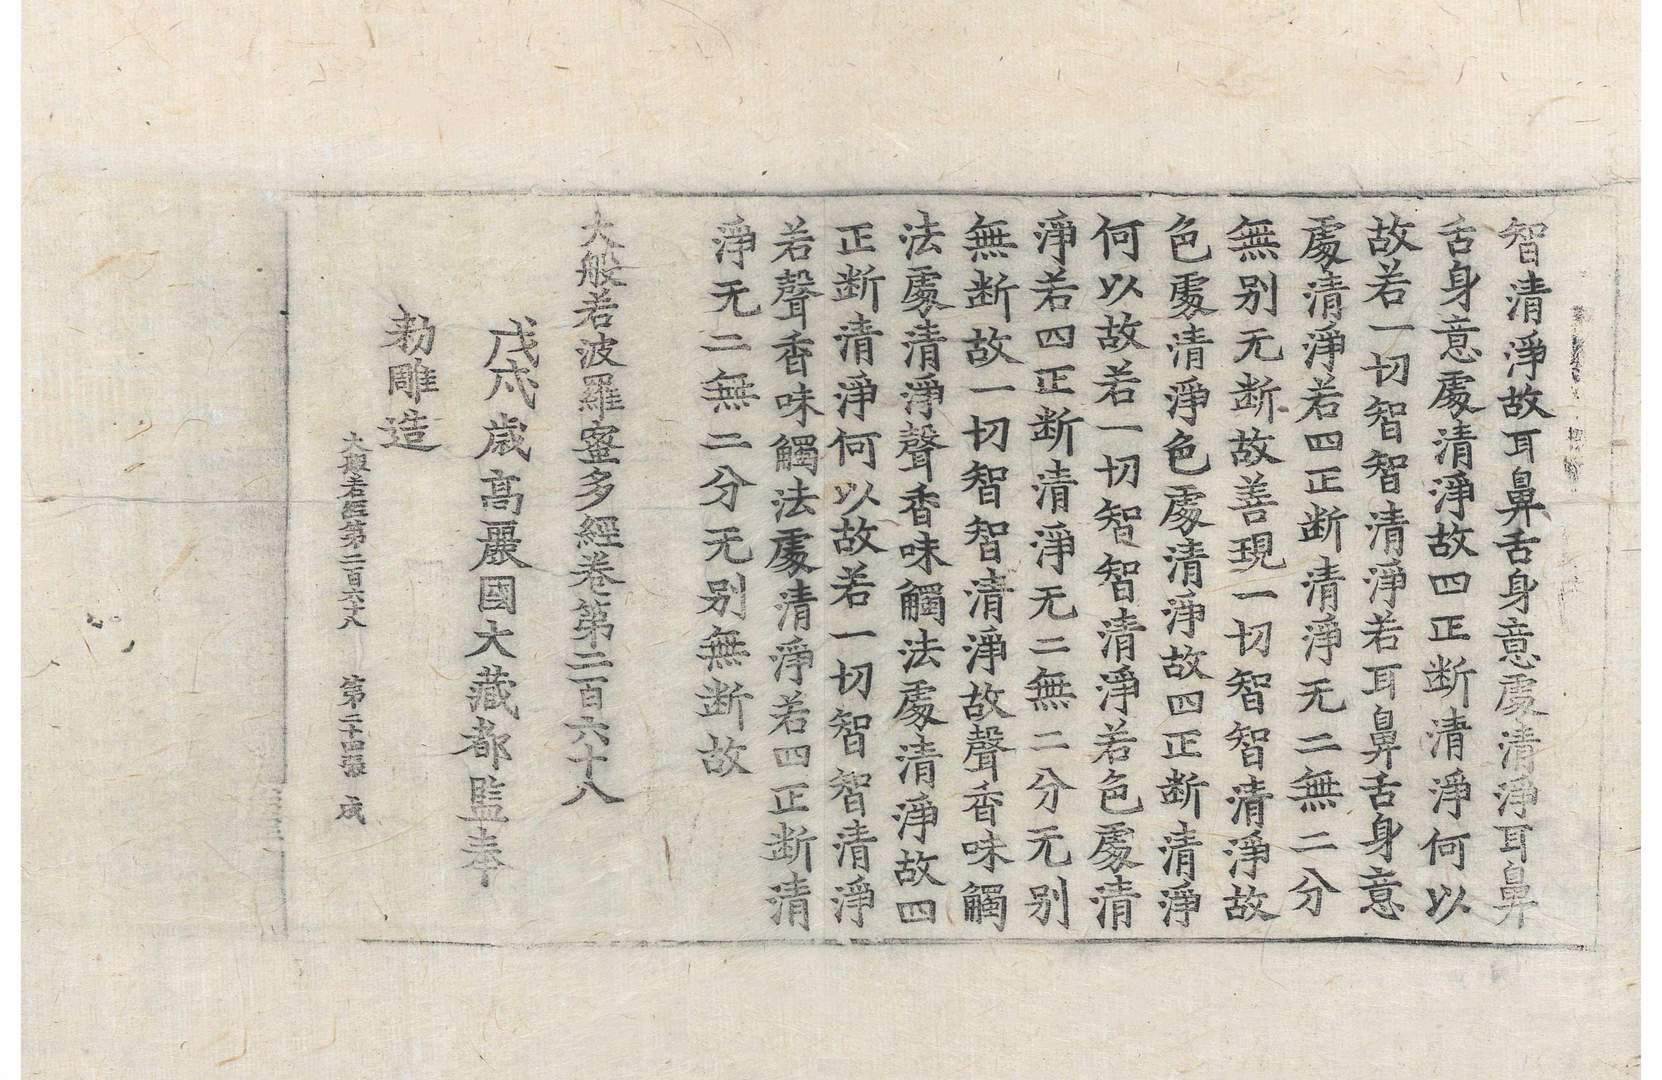 智清淨故耳鼻舌身意處清淨耳鼻
舌身意處清淨故四正断清淨何以
故若一切智智清淨若耳鼻舌身意
處清淨若四正断清淨无二無二分
無别无断故善現一切智智清淨故
色處清淨色處清淨故四正断清淨
何以故若一切智智清淨若色處清
淨若四正断清淨无二無二分无别
無断故一切智智清淨故聲香味觸
法處清淨聲香味觸法處清淨故四
正断清淨何以故若一切智智清淨
若聲香味觸法處清淨若四正断清
淨无二無二分无别無断故
大般若波羅蜜多經卷第二百六十八
戊戌歳高麗國大藏都監奉
勑雕造
大般若經第二百六十八 第二十四張 成